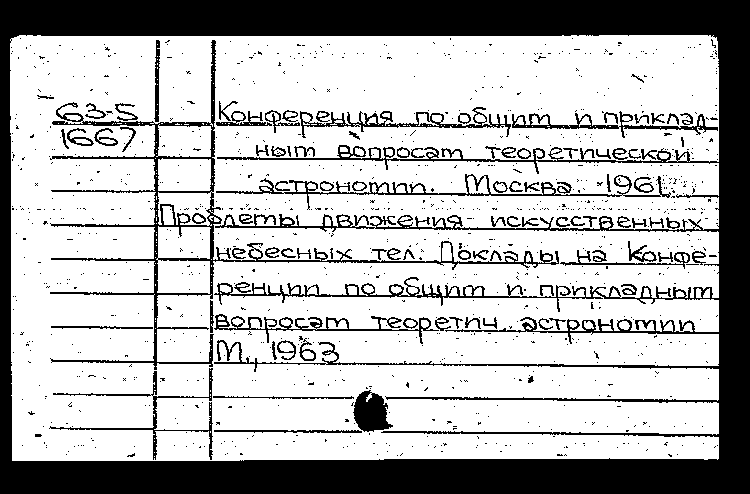 63-5
1667
Конференция по общим и приклад-
ным вопросам теоретической
астрономии. Москва. 1961.
Проблемы движения искусственных
небесных тел. Доклады на Конфе-
ренции по общим и прикладным
вопросам теоретич. астрономии
М., 1963